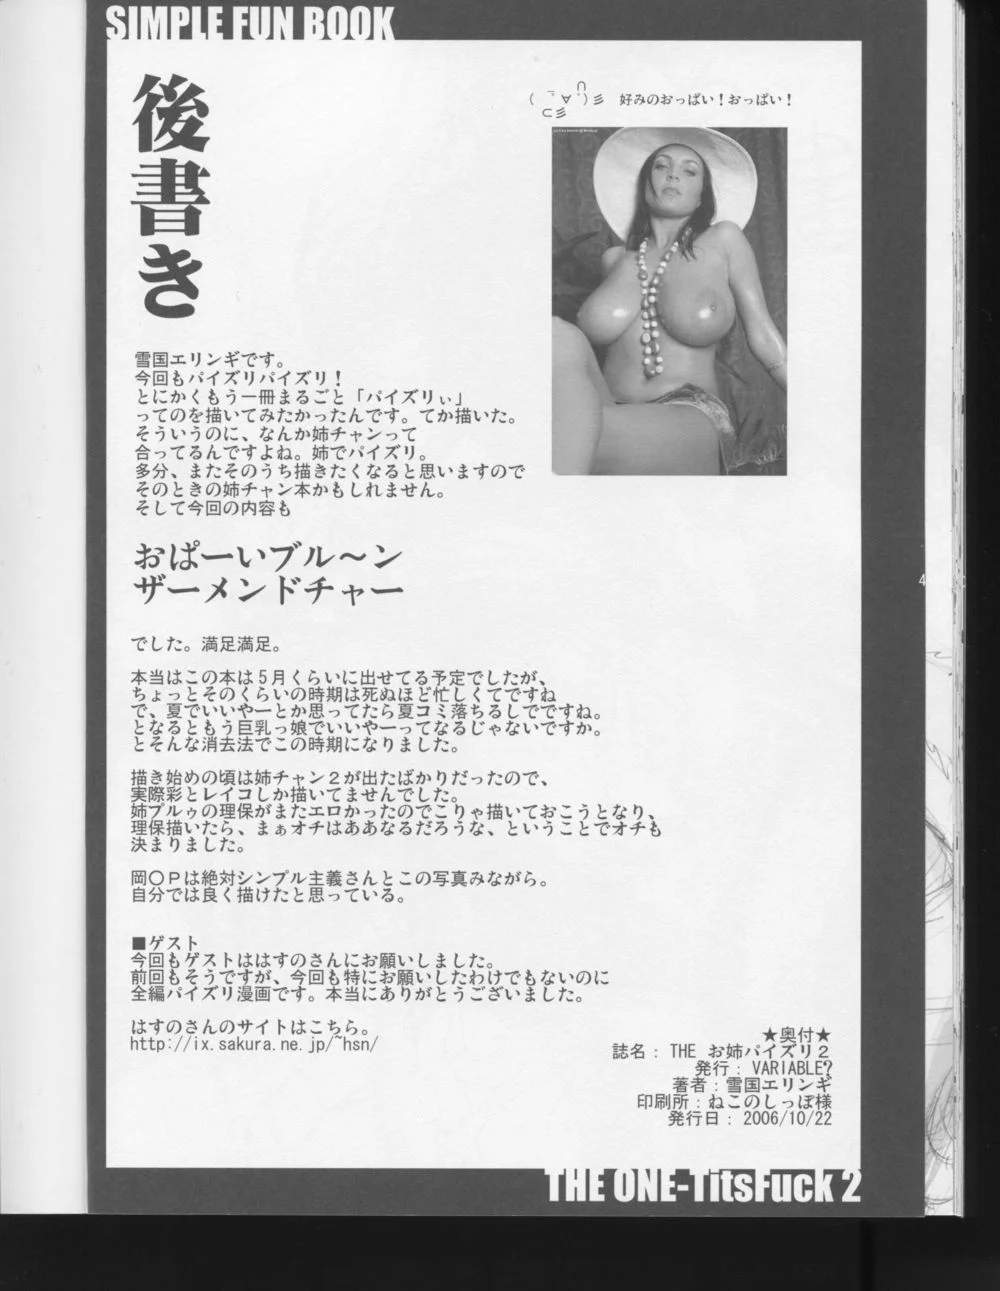 SIMPLE FUN BOOK
後書き
好みのおっぱい!おっぱい!
雪国エリンギです。
今回もパイズリパイズリ!
とにかくもう一冊まるごと「パイズリぃ」
ってのを描いてみたかったんです。てか描いた。
そういうのに、なんか姉チャンって
合ってるんですよね。姉でパイズリ。
多分、またそのうち描きたくなると思いますので
そのときの姉チャン本かもしれません。
そして今回の内容も
おぱーいブル〜ン
ザーメンドチャー
でした。満足満足。
本当はこの本は5月くらいに出せてる予定でしたが、
ちょっとそのくらいの時期は死ぬほど忙しくてですね
で、夏でいいやーとか思ってたら夏コミ落ちるしでですね。
となるともう巨乳っ娘でいいやーってなるじゃないですか。
とそんな消去法でこの時期になりました。
描き始めの頃は姉チャン2が出たばかりだったので、
実際彩とレイコしか描いてませんでした。
姉プルゥの理保がまたエロかったのでこりゃ描いておこうとなり、
理保描いたら、まぁオチはああなるだろうな、ということでオチも
決まりました。
岡〇Pは絶対シンプル主義さんとこの写真みながら。
自分では良く描けたと思っている。
■ゲスト
今回もゲストははすのさんにお願いしました。
前回もそうですが、今回も特にお願いしたわけでもないのに
全編パイズリ漫画です。本当にありがとうございました。
はすのさんのサイトはこちら。
http://ix.sakura.ne.jp/~hsn/
★奥付★
誌名: THE お姉パイズリ2
発行: VARIABLE?
著者:雪国エリンギ
印刷所:ねこのしっぽ様
発行日: 2006/10/22
THE ONE-TitsFuck 2